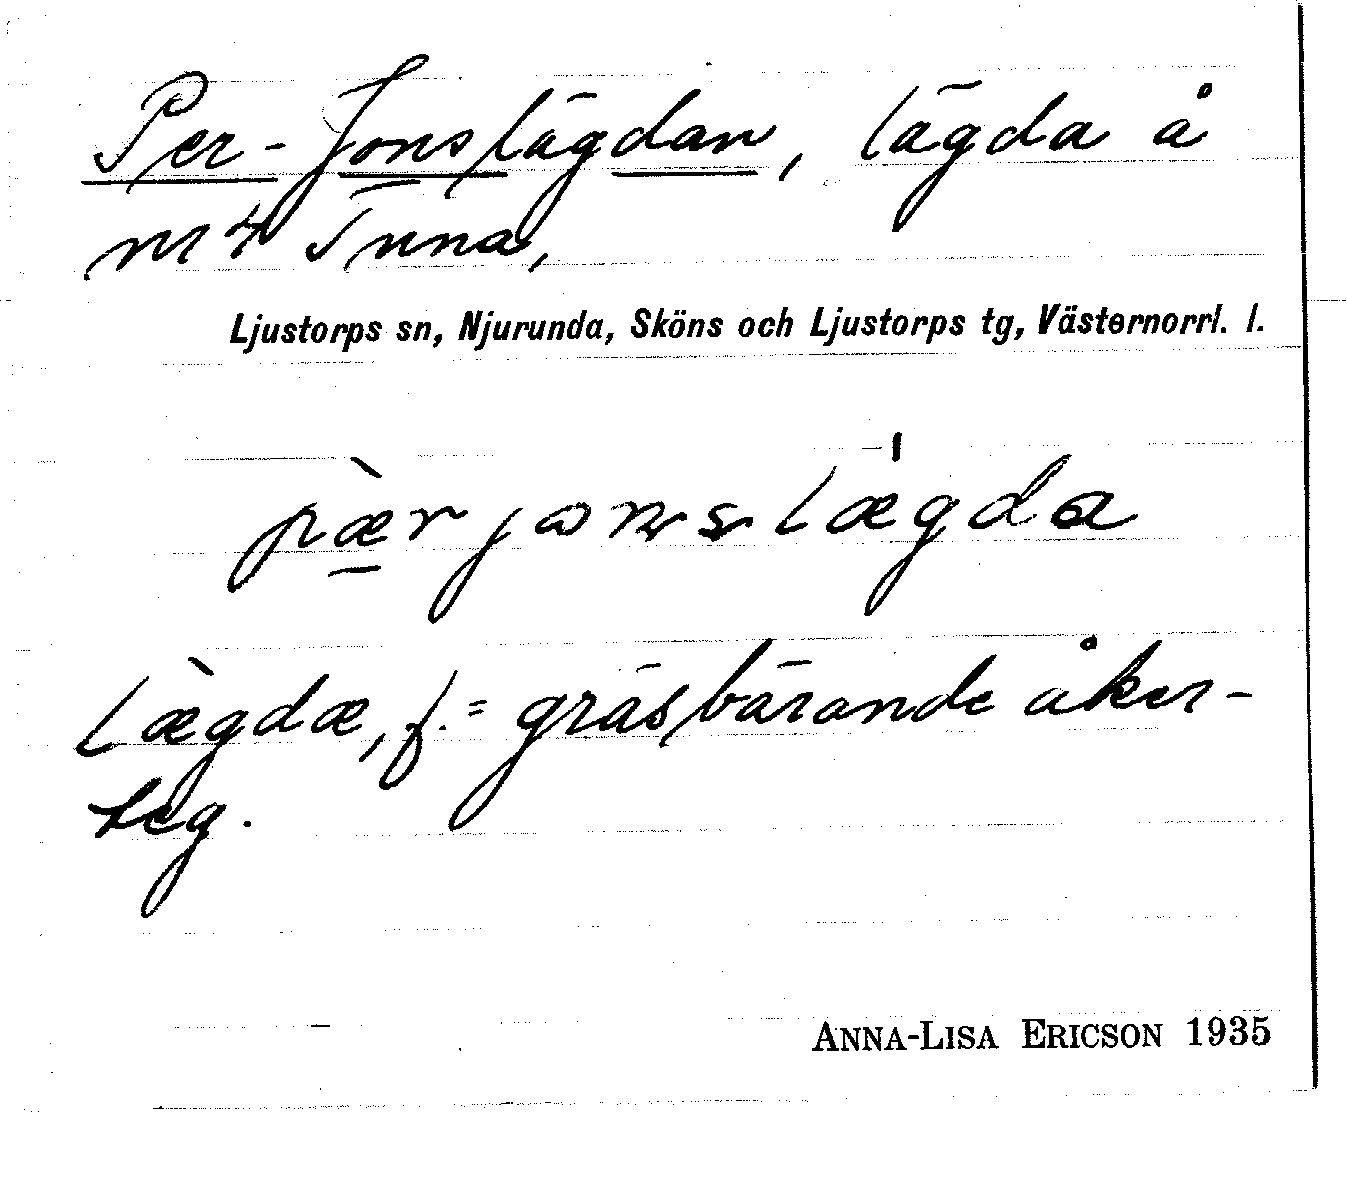 Per-Jonslägdan, lägda å
nr 4 Tunna,
Ljustorps sn, Njurunda, Sköns och Ljustorps tg, Västernorrl. l.
pæ̀r jɷnslægda
lægdæ, f. = gräsbärande åker-
teg.
ANNA-LISA ERICSON 1935